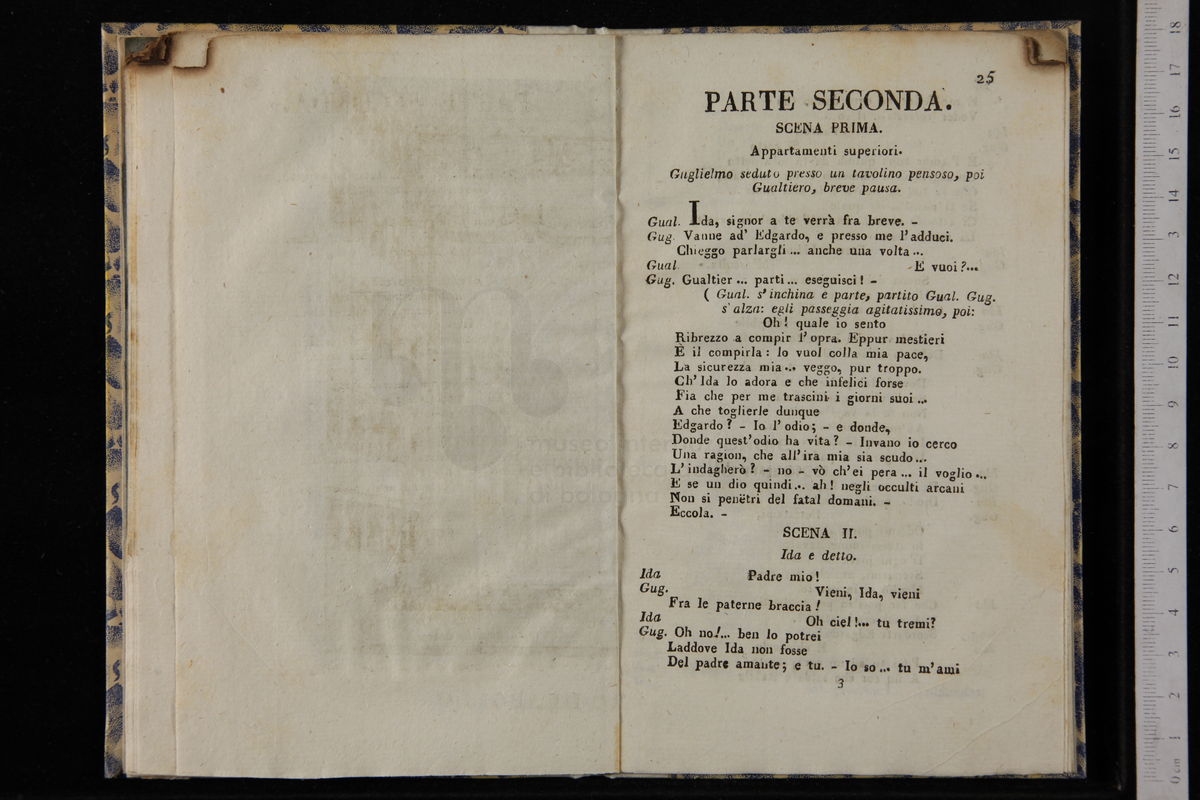 25
PARTE SECONDA.
SCENA PRIMA.
Appartamenti superiori.
Guglielmo seduto presso un tavolino pensoso, poi
Gualtiero, breve pausa.
Gual. Ida, signor a te verrà fra breve. –
Gug. Vanne ad' Edgardo, e presso me l'adduci.
Chieggo parlargli ... anche una volta ...
Gual. E vuoi?...
Gug. Gualtier ... parti ... eseguisci! –
( Gual. s'inchina e parte, partito Gual. Gug.
s'alza: egli passeggia agitatissimo, poi:
Oh! quale io sento
Ribrezzo a compir l'opra. Eppur mestieri
È il compirla: lo vuol colla mia pace,
La sicurezza mia... veggo, pur troppo.
Ch'Ida lo adora e che infelici forse
Fia che per me trascini i giorni suoi ...
A che toglierle dunque
Edgardo? – Io l'odio; – e donde,
Donde quest'odio ha vita? – Invano io cerco
Una ragion, che all'ira mia sia scudo ...
L'indagherò? – no – vò ch'ei pera ... il voglio ...
E se un dio quindi... ah! negli occulti arcani
Non si penëtri del fatal domani. –
Eccola. –
SCENA II.
Ida e detto.
Ida Padre mio!
Gug. Vieni, Ida, vieni
Fra le paterne braccia!
Ida Oh ciel!... tu tremi?
Gug. Oh no!... ben lo potrei
Laddove Ida non fosse
Del padre amante; e tu. – Io so ... tu m'ami
3
0 cm 1 2 3 4 5 6 7 8 9 10 11 12 13 14 15 16 17 18